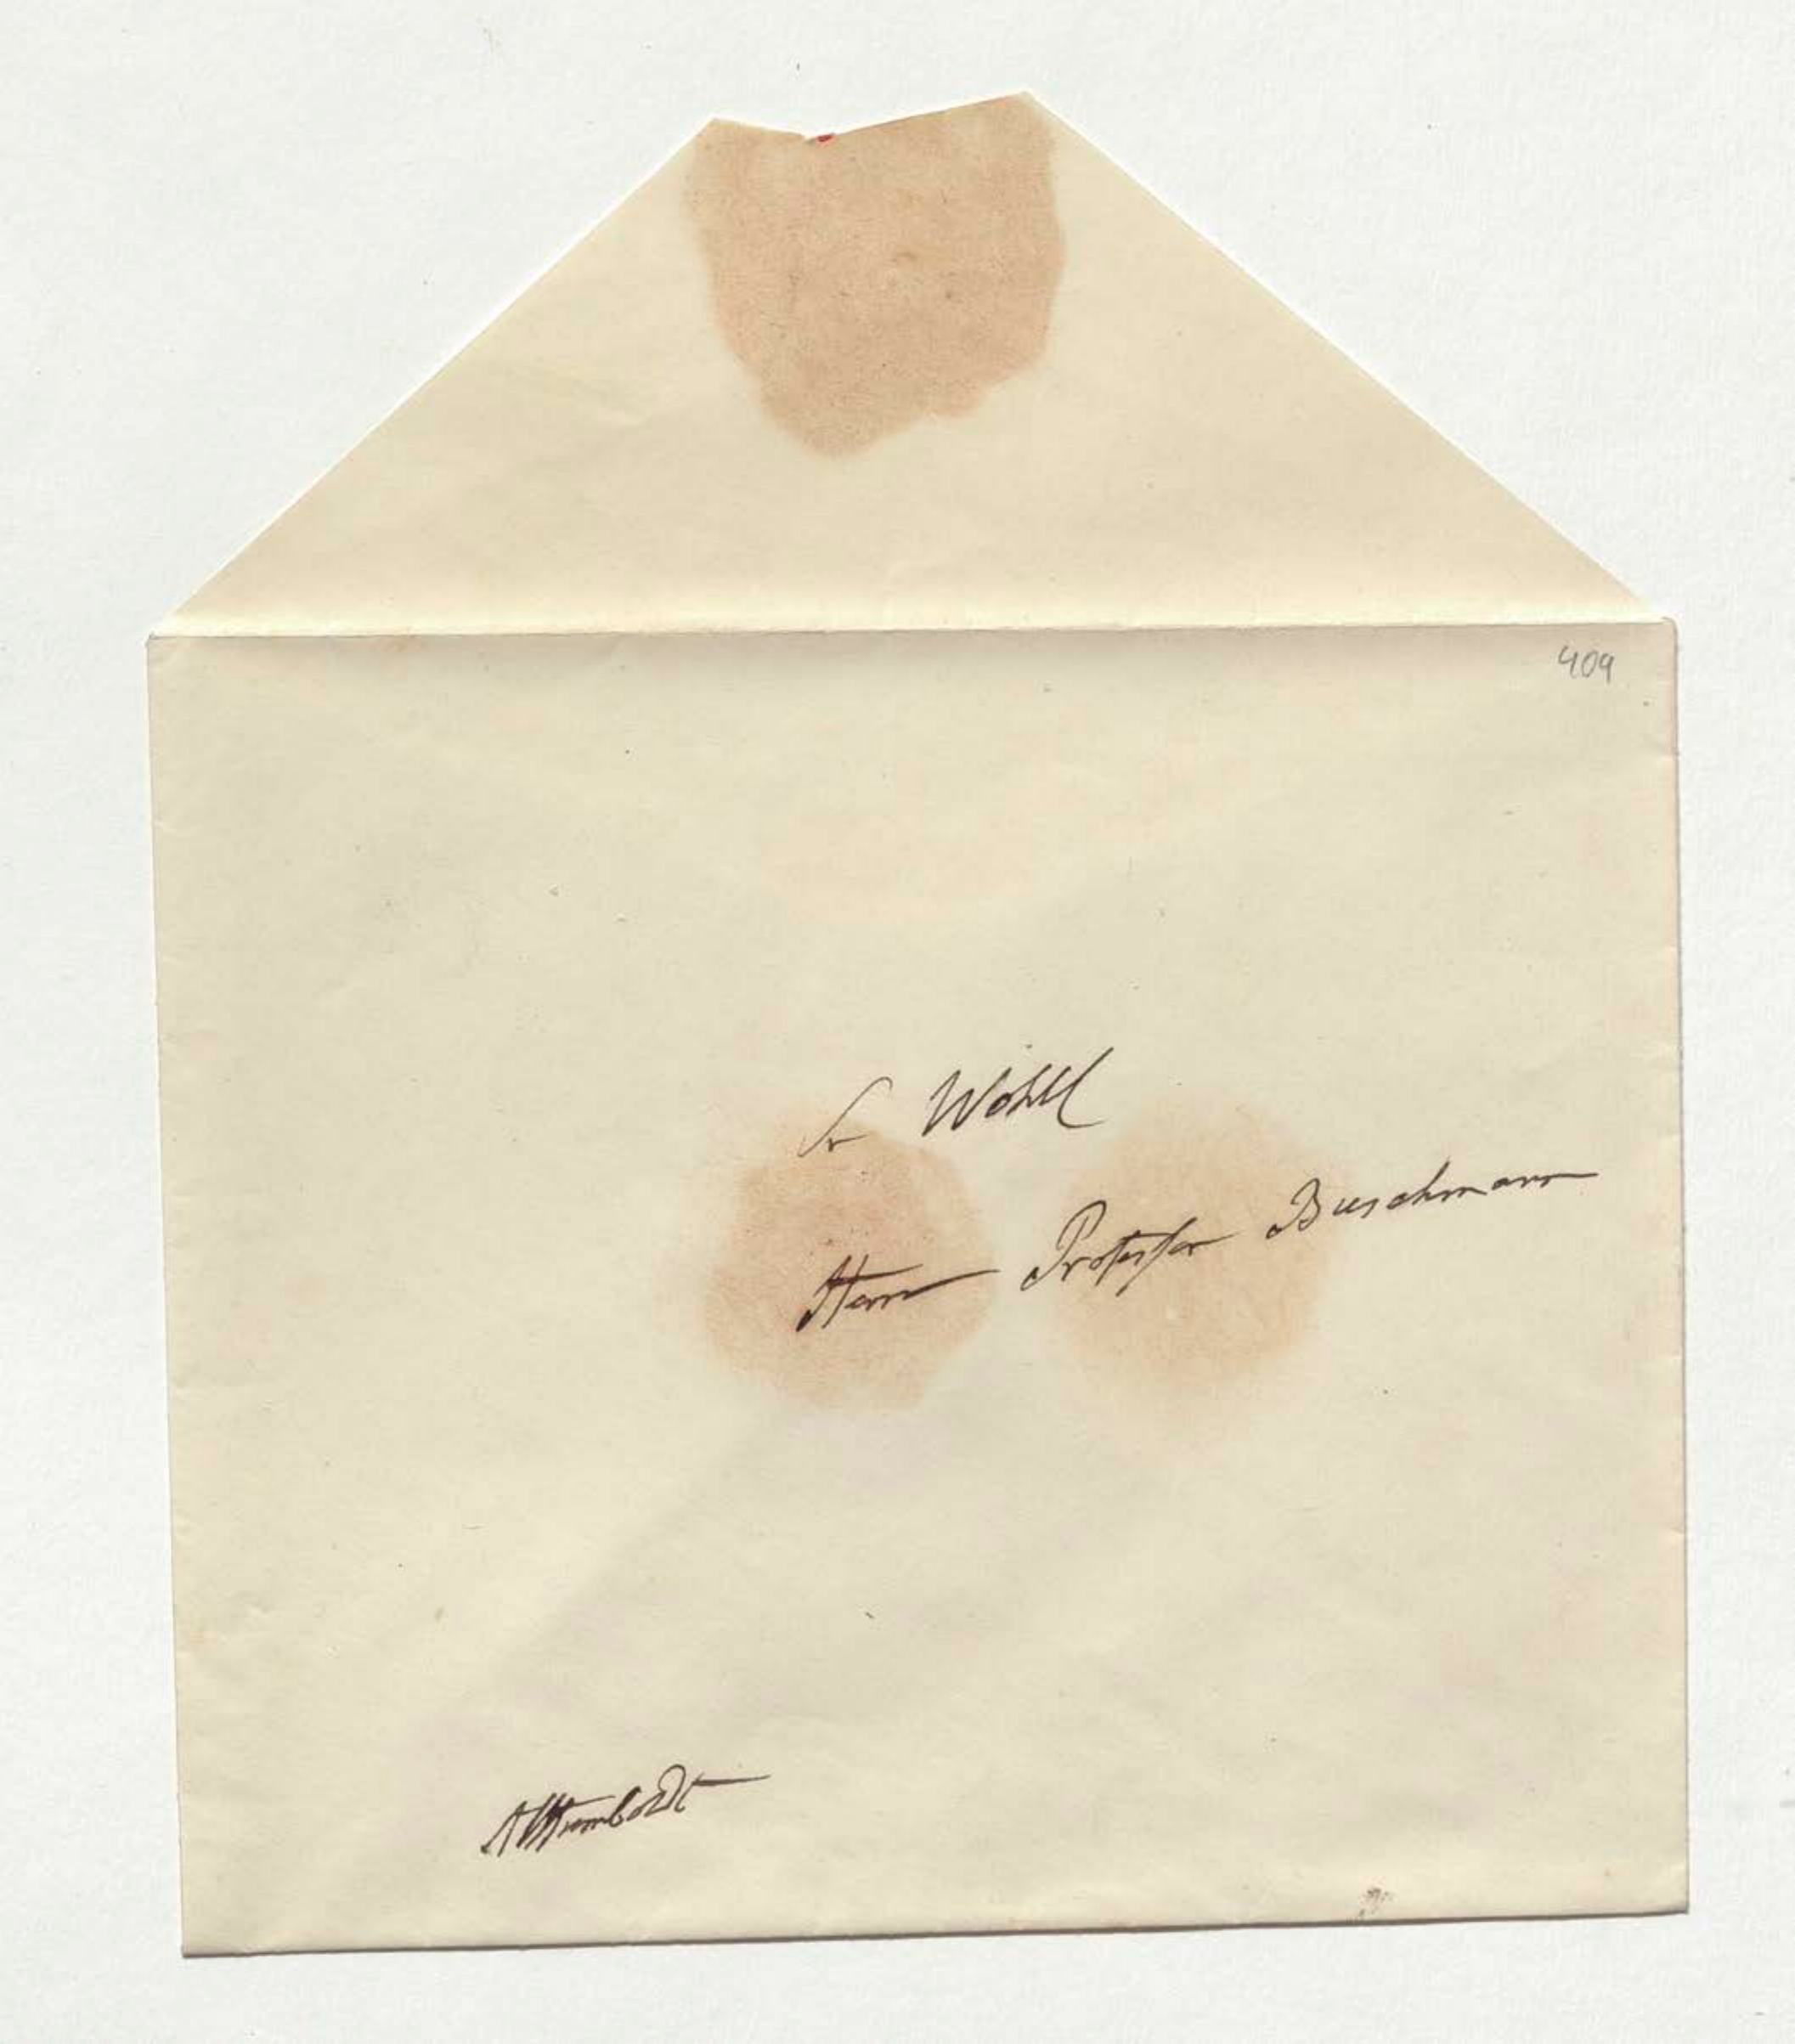 409
Sr Wohll
Herrn Professor Buschmann
AlHumboldt